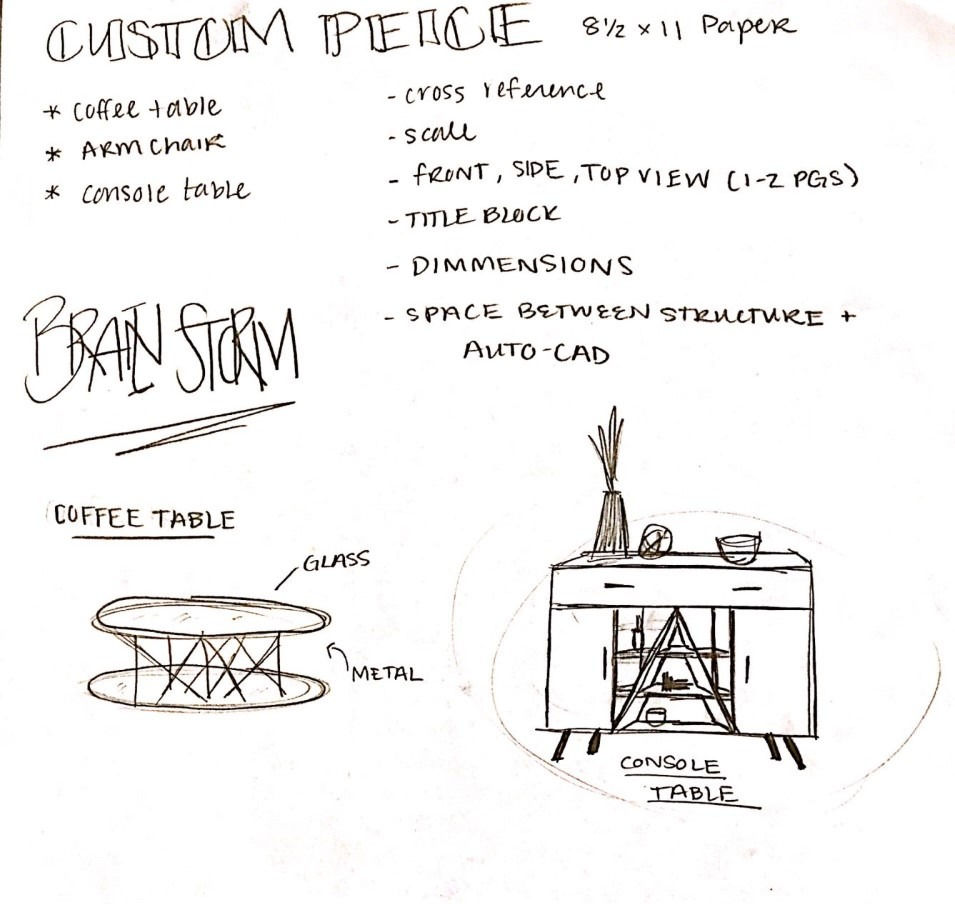 CUSTOM PEICE 8 1/2 x 11 Paper
* coffee table
* ARM CHAIR
* console table
- cross reference
- scale
- FRONT, SIDE, TOP VIEW (1-2 PGS)
- TITLE BLOCK
- DIMMENSIONS
- SPACE BETWEEN STRUCTURE +
AUTO-CAD
BRAIN STORM
COFFEE TABLE
GLASS
METAL
CONSOLE
TABLE